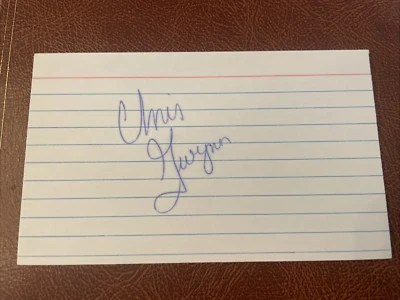 Chris
Gwynn